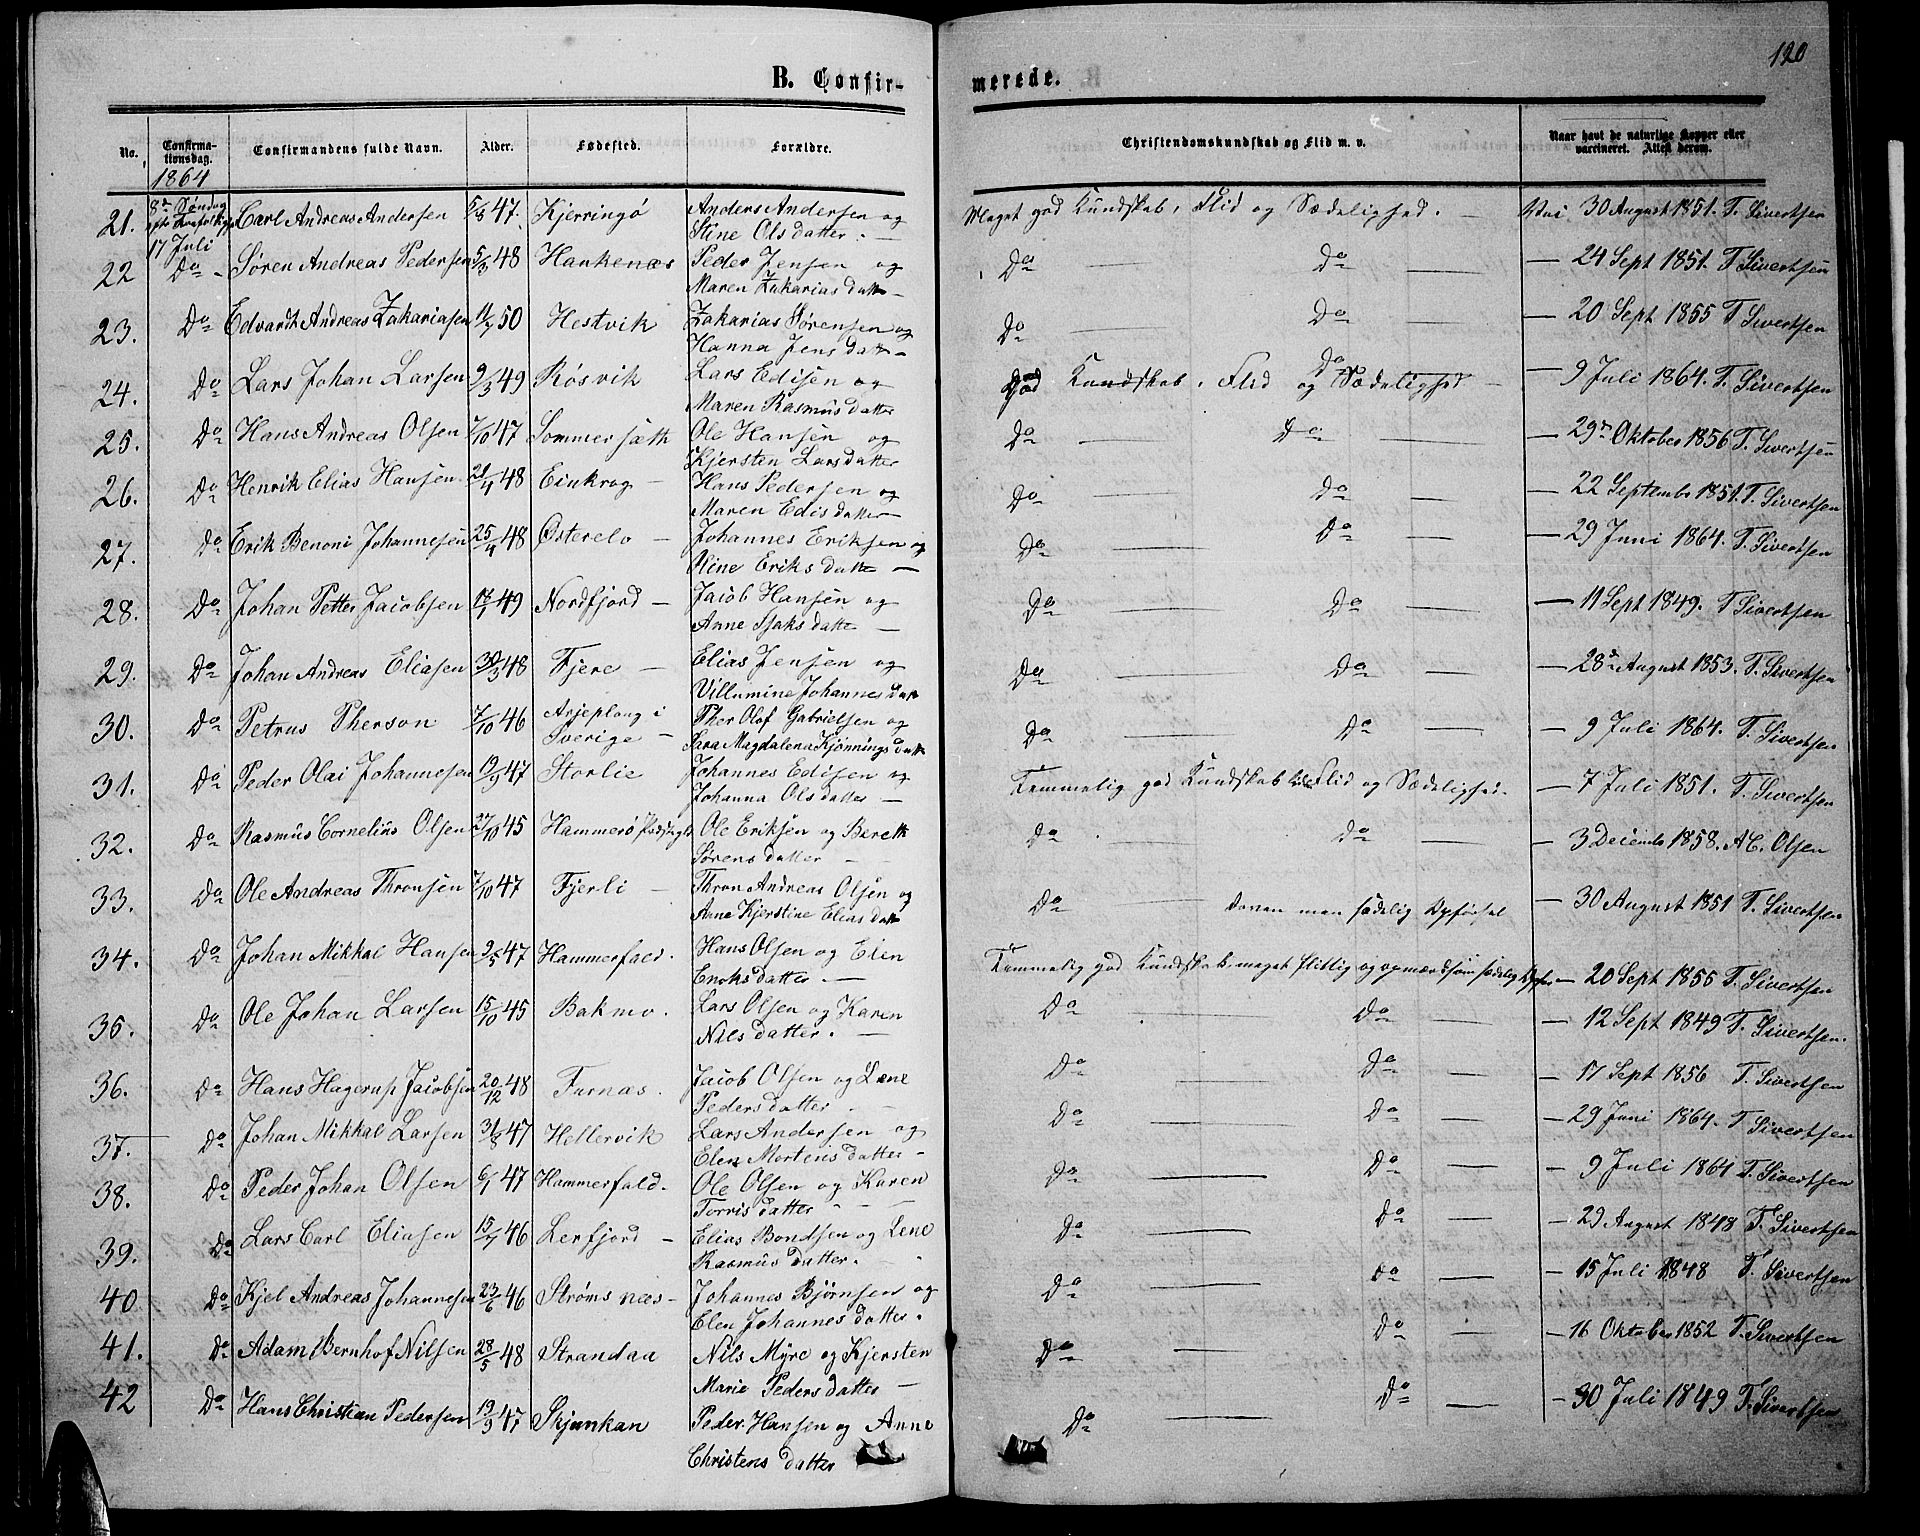 120
B. Confirmerede.
No. Confirmationsdag. Confirmandens fulde Navn. Alder. Fødested. Forældre. Christendomskundskab og Flid m. v. Naar havt de naturlige Kopper eller vaccineret. Attest derom.
1864
21. 8de Søndag 17 Juli Carl Andreas Andersen 5/8 47. Kjerringø Anders Andersen og Meget god Kundskab, Flid og Sædelighed. — Vac 30 August 1851. T. Sivertsen
Stine Olsdatter. —
22 Do Søren Andreas Pedersen 5/3 48 Hankenæs Peder Jensen og Do — Do — — 24 Sept 1851. T Sivertsen
Maren Zakariasdatt —
23. Do Edvardt Andreas Zakariasen 11/7 50 Hestvik Zakarias Sørensen og Do — Do — — 20 Sept 1855 T Sivertsen
Hanna Jensdatt —
24. Do Lars Johan Larsen 9/3 49 Røsvik Lars Edisen og God Kundskab, Flid og Sædelighed — — 9 Juli 1864. T. Sivertsen
Maren Rasmusdatter
25. Do Hans Andreas Olsen 7/10 47 Sommersætt Ole Hansen og Do — Do — — 29de Oktober 1856 T. Sivertsen
Kjersten Larsdatter
26. Do Henrik Elias Hansen 21/4 48 Einkrog — Hans Pedersen og Do — Do — — 22 Septembr 1851. T. Sivertsen
Maren Edisdatter —
27. Do Erik Benoni Johannesen 25/4 48 Østerelv — Johannes Eriksen og Do — Do — — 29 Juni 1864. T. Sivertsen
Stine Eriksdatte —
28. Do Johan Petter Jacobsen 17/1 49 Nordfjord — Jacob Hansen og Do — Do — — 11 Sept 1849. T Sivertsen
Anne Isaksdatte —
29. Do Johan Andreas Eliasen 30/3 48 Fjere — Elias Jensen og Do — Do — — 28de August 1853. T. Sivertsen
Villumine Johannesdatt
30. Do Petrus Pherson 7/10 46 Arjeplong i Sverige — Pher Olof Gabrielsen og Do — Do — — 9 Juli 1864. T. Sivertsen
Sara Magdalena Kjønningsdatt
31. Do Peder Olai Johannesen 19/9 47 Storlie Johannes Edisen og Temmelig god Kundskab Flid og Sædelighed. — 7 Juli 1851. T. Sivertsen
Johanna Olsdatter —
32. Do Rasmus Cornelius Olsen 27/10 45 Hammerø Præstegjeld Ole Eriksen og Berett Do — Do — — 3 Decembr 1858. A C. Olsen
Sørensdatter —
33. Do Ole Andreas Thronsen 7/10 47 Fjerli — Thron Andreas Olsen og Do — sædelig Opførsel — 30 August 1851 T. Sivertsen
Anne Kjerstine Eliasdatt
34. Do Johan Mikkal Hansen 9/5 47 Hammerfald. Hans Olsen og Elen Temmelig god Kundskab, meget flittig og opmærksom sædelig Opførs — 20 Sept 1855 T. Sivertsen
Enoksdatter. —
35. Do Ole Johan Larsen 15/10 45 Bakmo. Lars Olsen og Karen Do Do — — 12 Sept 1849 T. Sivertsen.
Nilsdatter. —
36. Do Hans Hagerup Jacobsen 20/12 48 Furnæs. Jacob Olsen og Lene Do — Do — — 17 Sept 1856 T. Sivertsen
Pedersdatter —
37. Do Johan Mikkal Larsen 31/8 47 Hellervik Lars Andersen og Do — Do — — 29 Juni 1864. T. Sivertsen
Elen Mortensdatter —
38. Do Peder Johan Olsen 6/1 47 Hammerfald. Ole Olsen og Karen Do — Do — — 9 Juli 1864 T. Sivertsen
Torrisdatter —
39. Do Lars Carl Eliasen 15/7 46 Lerfjord — Elias Bondsen og Lene Do — Do — — 29 August 1848 T. Sivertsen
Rasmusdatter.
40 Do Kjel Andreas Johannesen 23/6 46 Strømsnæs — Johannes Bjørnsen og Do — Do — — 15 Juli 1848 T. Sivertsen
Elen Johannesdatter.
41. Do Adam Bernhof Nilsen 28/5 48 Strandaa Nils Myre og Kjersten Do — Do — — 16 Oktober 1852 T. Sivertsen
Marie Pedersdatter —
42 Do Hans Christian Pedersen 19/3 47 Skjunkan Peder Hansen og Anne Do — Do — — 30 Juli 1849 T. Sivertsen
Christensdatter